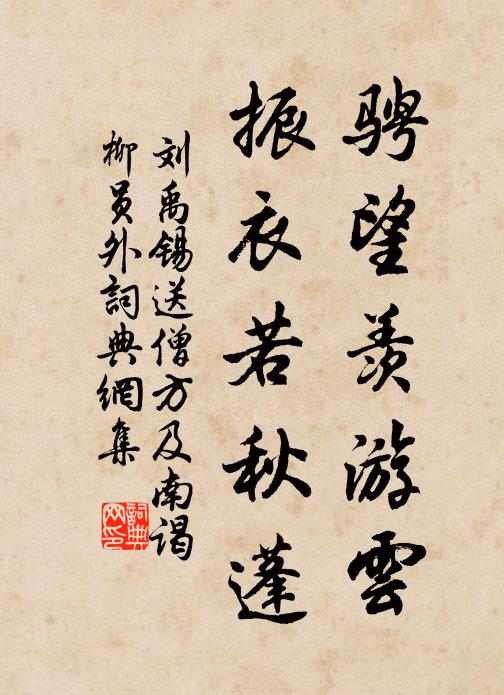 骋望羡游雲
振衣若秋蓬
刘禹锡送僧方及南谒
柳員外詞典網集
詞典网印